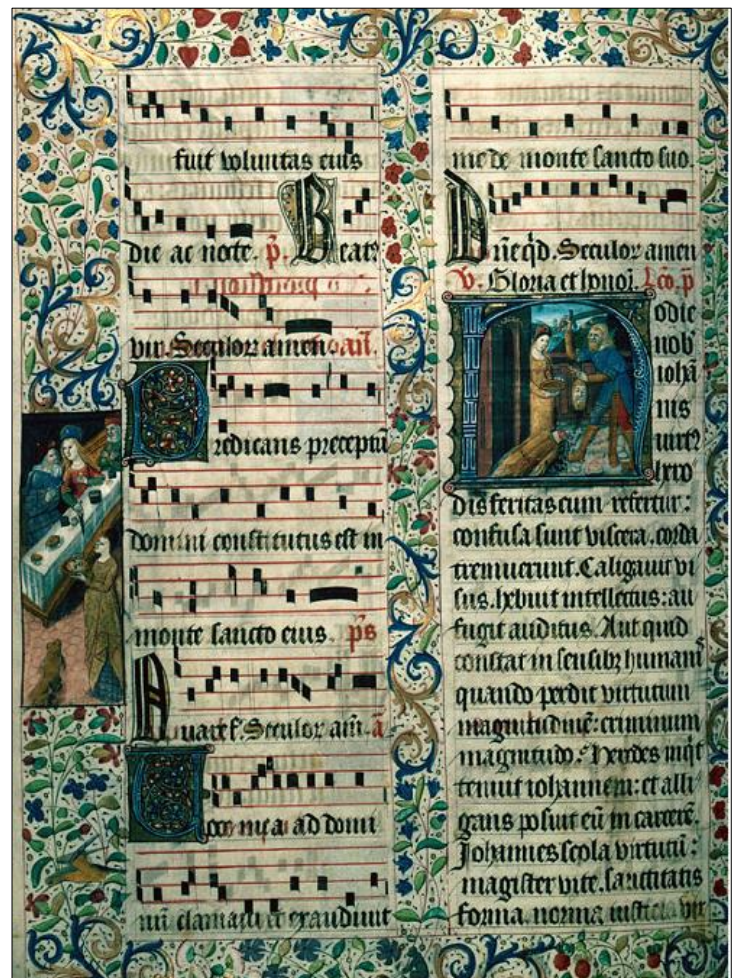 fuit voluntas eius
die ac nocte. p̄. Beatꝰ
vir. Seculoꝝ amen. an̄.
Predicans preceptū
domini constitutus est in
monte sancto eius. ps
Quare f. Seculoꝝ am̄. a
Voce mea ad domi
nū clamaui et exaudiuit
me de monte sancto suo.
Dn̄e qd̄. Seculoꝝ amen
V. Gloria et honoꝝ. Lc̄o. p̄
Hodie
nob̄
iohā
nis
uirtꝰ
hero
dis feritas cum refertur:
confusa sunt viscera. corda
tremuerunt. Caligauit vi
sus. hebuit intellectus: au
fugit auditus. Aut quid
constat in sensibꝫ humanis
quando perdit virtutum
magnitudinē: criminum
magnitudo. Herodes inqt
tenuit iohannem: et alli
gans posuit eū in carcerē.
Johannes scola virtutū:
magister vite. sanctitatis
forma. norma iusticie vir